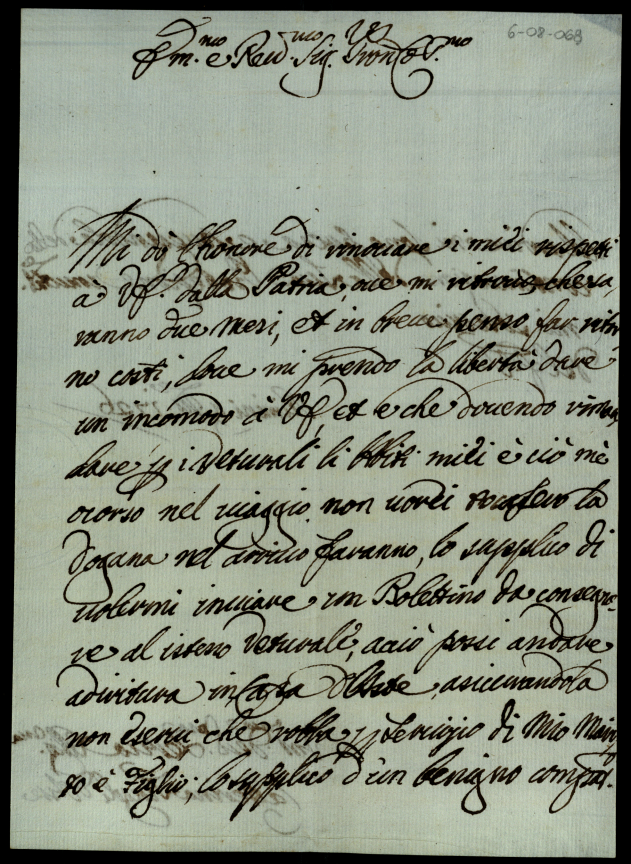 6-08-068
Ill.mo e Rev.mo Sig. Sig. Pron. Col.mo
Mi dò l'honore di rinovare i miei rispetti
a V.S. dalla Patria, ove mi ritrovo, che sa,
ranno due mesi, et in breve penso far ritor
no costì, dove mi prendo la libertà dare
un incomodo à V.S., et e che dovendo riman
dare p i Veturali li Abiti miei è ciò mè
ocorso nel viaggio non vorei la
Dogana nel arrivo faranno, lo supplico di
volermi inviare un Bolettino da consegna
re al istesso Veturale, aciò possi andare
adiritura in Casa d'Este, asicurandola
non esservi che robba p servigio di Mio Mari
to è Figli, lo supplico d'un benigno compat.